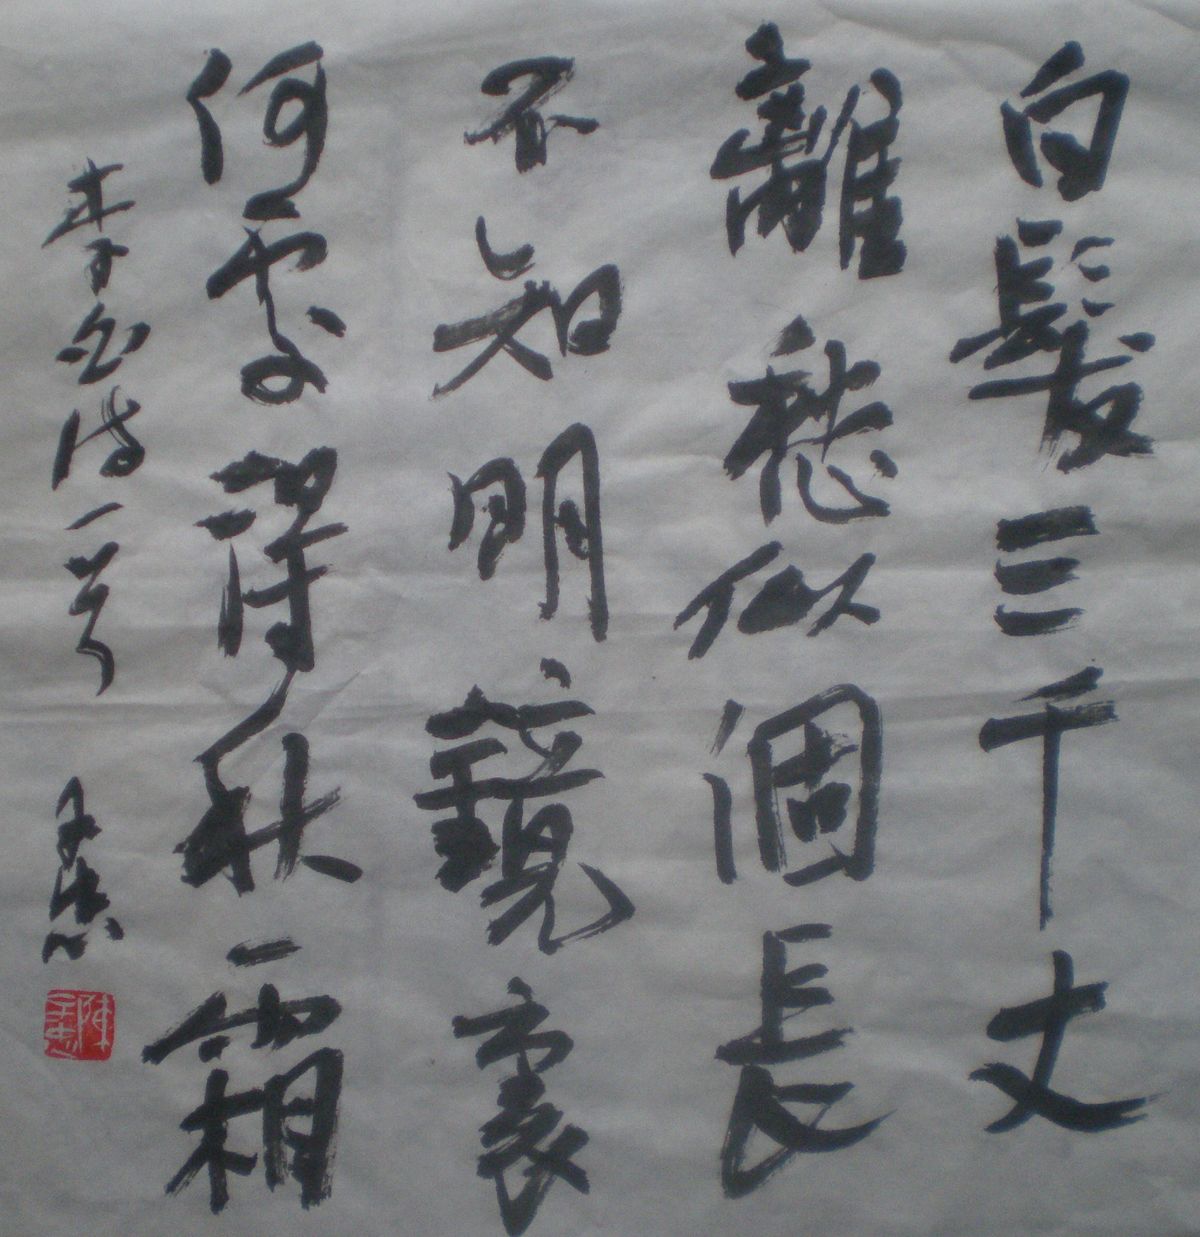 白髮三千丈
離愁似個長
不知明鏡裏
何處得秋霜
李白詩一首